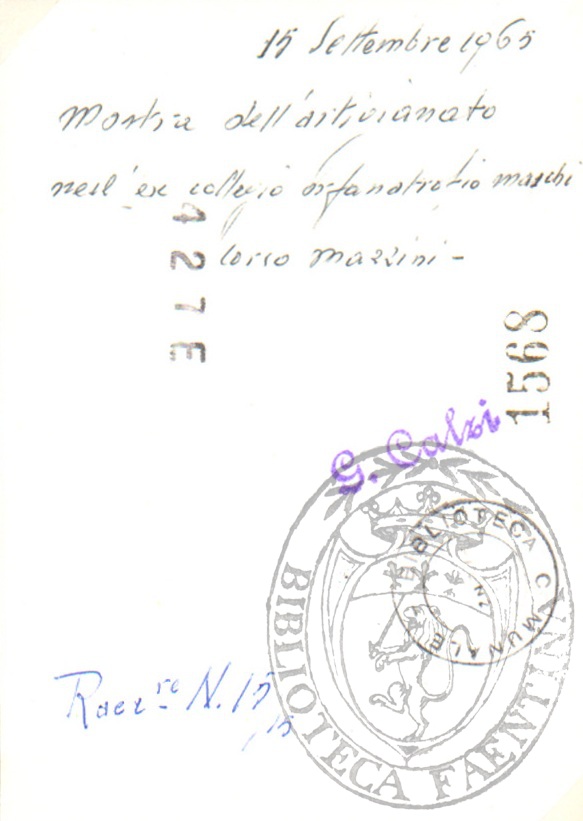 15 Settembre 1965
Mostra dell'artigianato
nell'ex collegio orfanotrofio maschi
corso Mazzini -
427E
1568
G. Calzi
BIBLIOTECA COMUNALE
BIBLIOTECA FAENTINA
N. 15